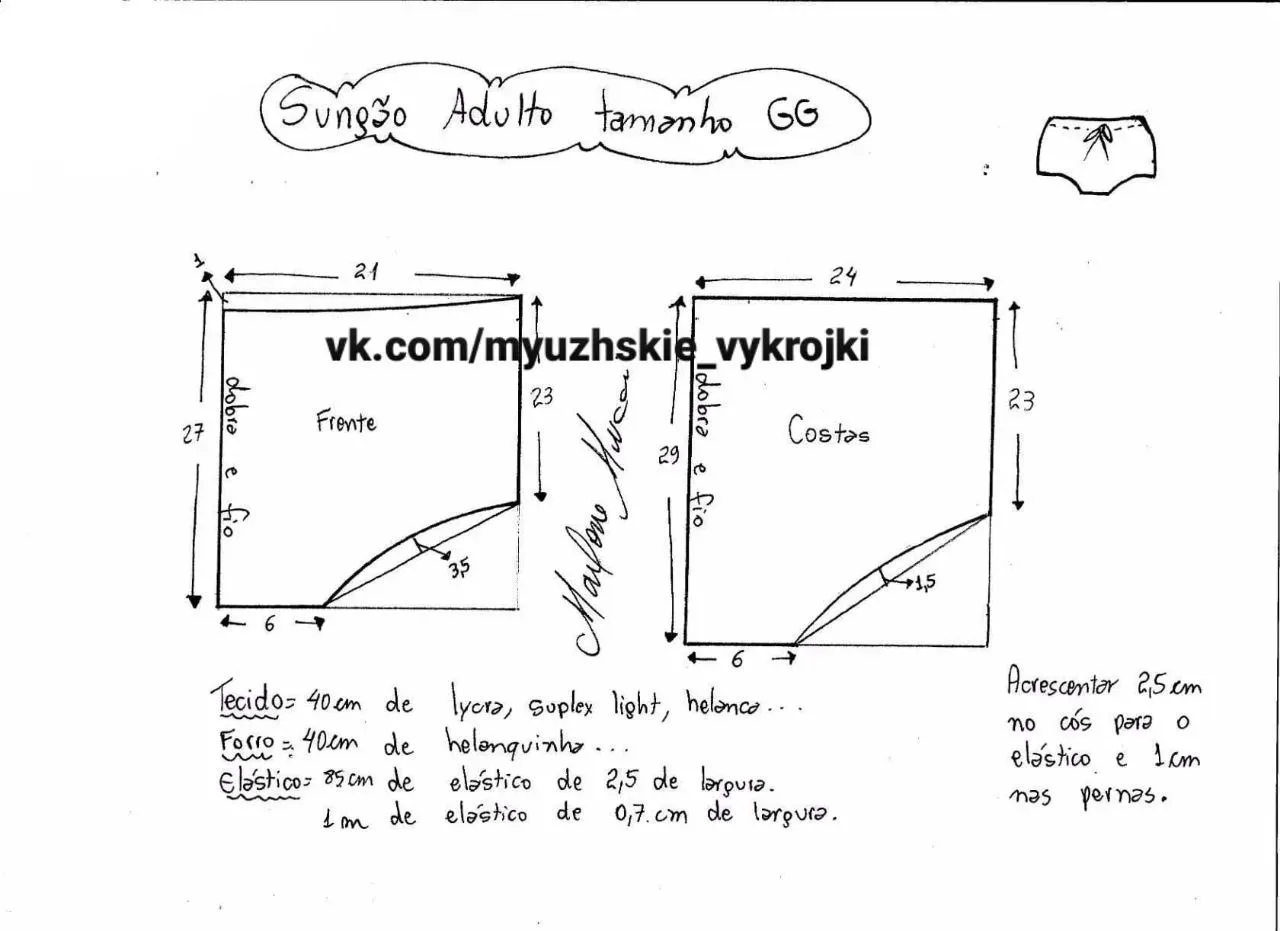 Sungão Adulto tamanho GG
1
21
27
23
dobra e fio
Frente
3,5
6
vk.com/myuzhskie_vykrojki
24
29
23
dobra e fio
Costas
1,5
6
Tecido= 40cm de lycra, suplex light, helanca...
Forro = 40cm de helanquinha...
Elástico= 85cm de elástico de 2,5 de largura.
1m de elástico de 0,7.cm de largura.
Acrescentar 2,5cm
no cós para o
elástico e 1cm
nas pernas.